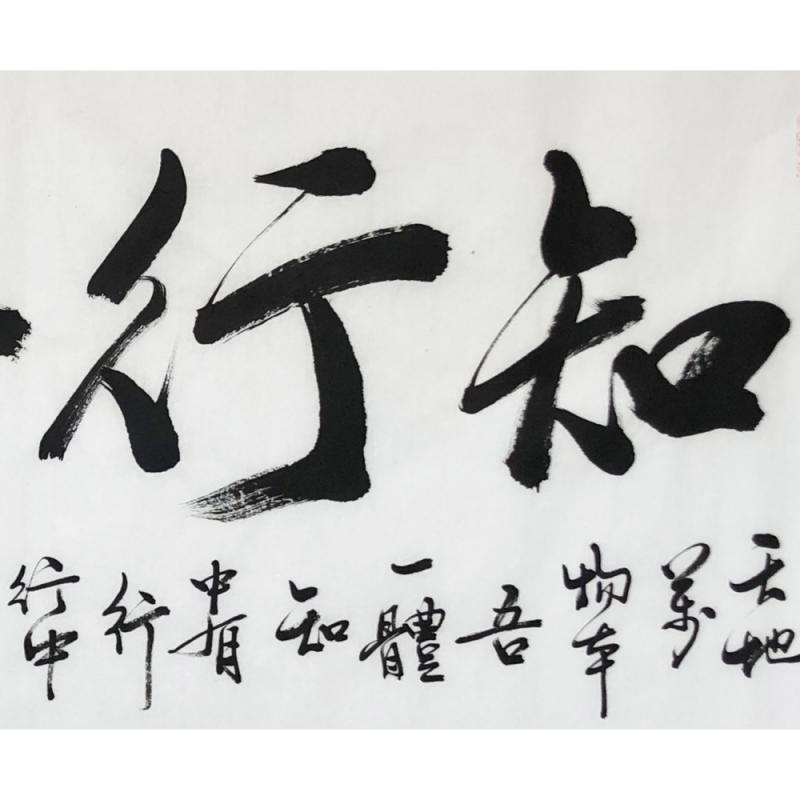 知行
天地萬物本吾一體知中有行行中